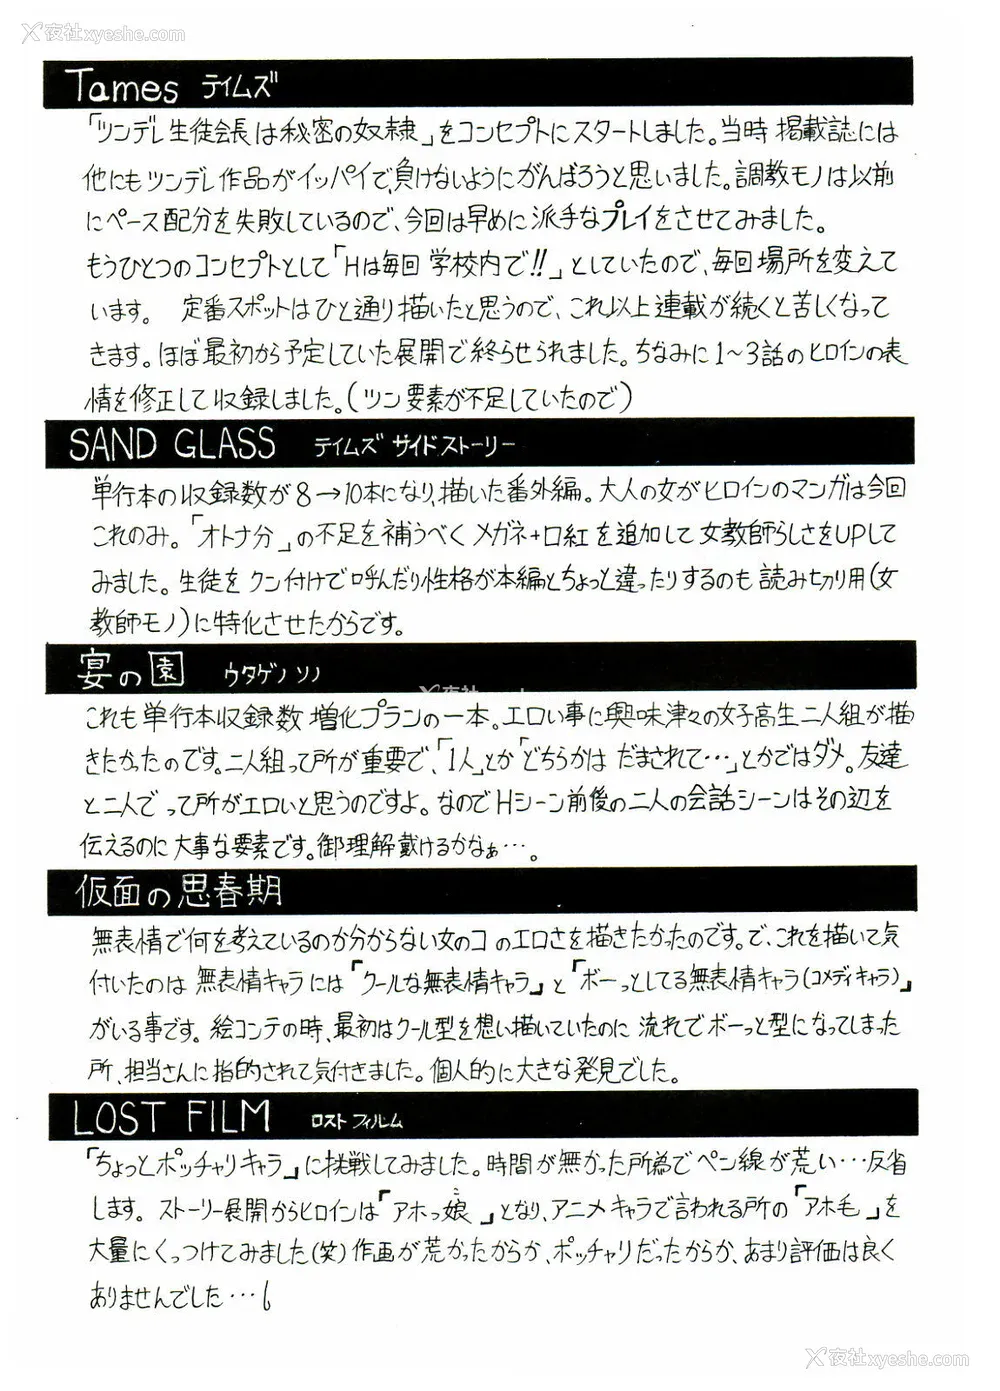 夜社xyeshe.com
Tames テイムズ
「ツンデレ生徒会長は秘密の奴隷」をコンセプトにスタートしました。当時 掲載誌には
他にもツンデレ作品がイッパイで、負けないようにがんばろうと思いました。調教モノは以前
にペース配分を失敗しているので、今回は早めに派手なプレイをさせてみました。
もうひとつのコンセプトとして「Hは毎回 学校内で!!」としていたので、毎回場所を変えて
います。 定番スポットはひと通り描いたと思うので、これ以上連載が続くと苦しくなって
きます。ほぼ最初から予定していた展開で終らせられました。ちなみに1〜3話のヒロインの表
情を修正して収録しました。(ツン要素が不足していたので)
SAND GLASS テイムズ サイドストーリー
単行本の収録数が8→10本になり、描いた番外編。大人の女がヒロインのマンガは今回
これのみ。「オトナ分」の不足を補うべくメガネ+口紅を追加して女教師らしさをUPして
みました。生徒をクン付けで呼んだり性格が本編とちょっと違ったりするのも読み切り用(女
教師モノ)に特化させたからです。
宴の園 ウタゲノソノ
これも単行本収録数増化プランの一本。エロい事に興味津々の女子高生二人組が描
きたかったのです。二人組って所が重要で、「1人」とか「どちらかは だまされて…」とかではダメ。友達
と二人でって所がエロいと思うのですよ。なのでHシーン前後の二人の会話シーンはその辺を
伝えるのに大事な要素です。御理解戴けるかなぁ…。
仮面の思春期
無表情で何を考えているのか分からない女のコのエロさを描きたかったのです。で、これを描いて気
付いたのは無表情キャラには「クールな無表情キャラ」と「ボーっとしてる無表情キャラ(コメディキャラ)」
がいる事です。絵コンテの時、最初はクール型を想い描いていたのに流れでボーっと型になってしまった
所、担当さんに指的されて気付きました。個人的に大きな発見でした。
LOST FILM ロストフィルム
「ちょっとポッチャリキャラ」に挑戦してみました。時間が無かった所為でペン線が荒い…反省
します。ストーリー展開からヒロインは「アホっ娘」となり、アニメキャラで言われる所の「アホ毛」を
大量にくっつけてみました(笑)作画が荒かったからか、ポッチャリだったからか、あまり評価は良く
ありませんでした…
夜社xyeshe.com